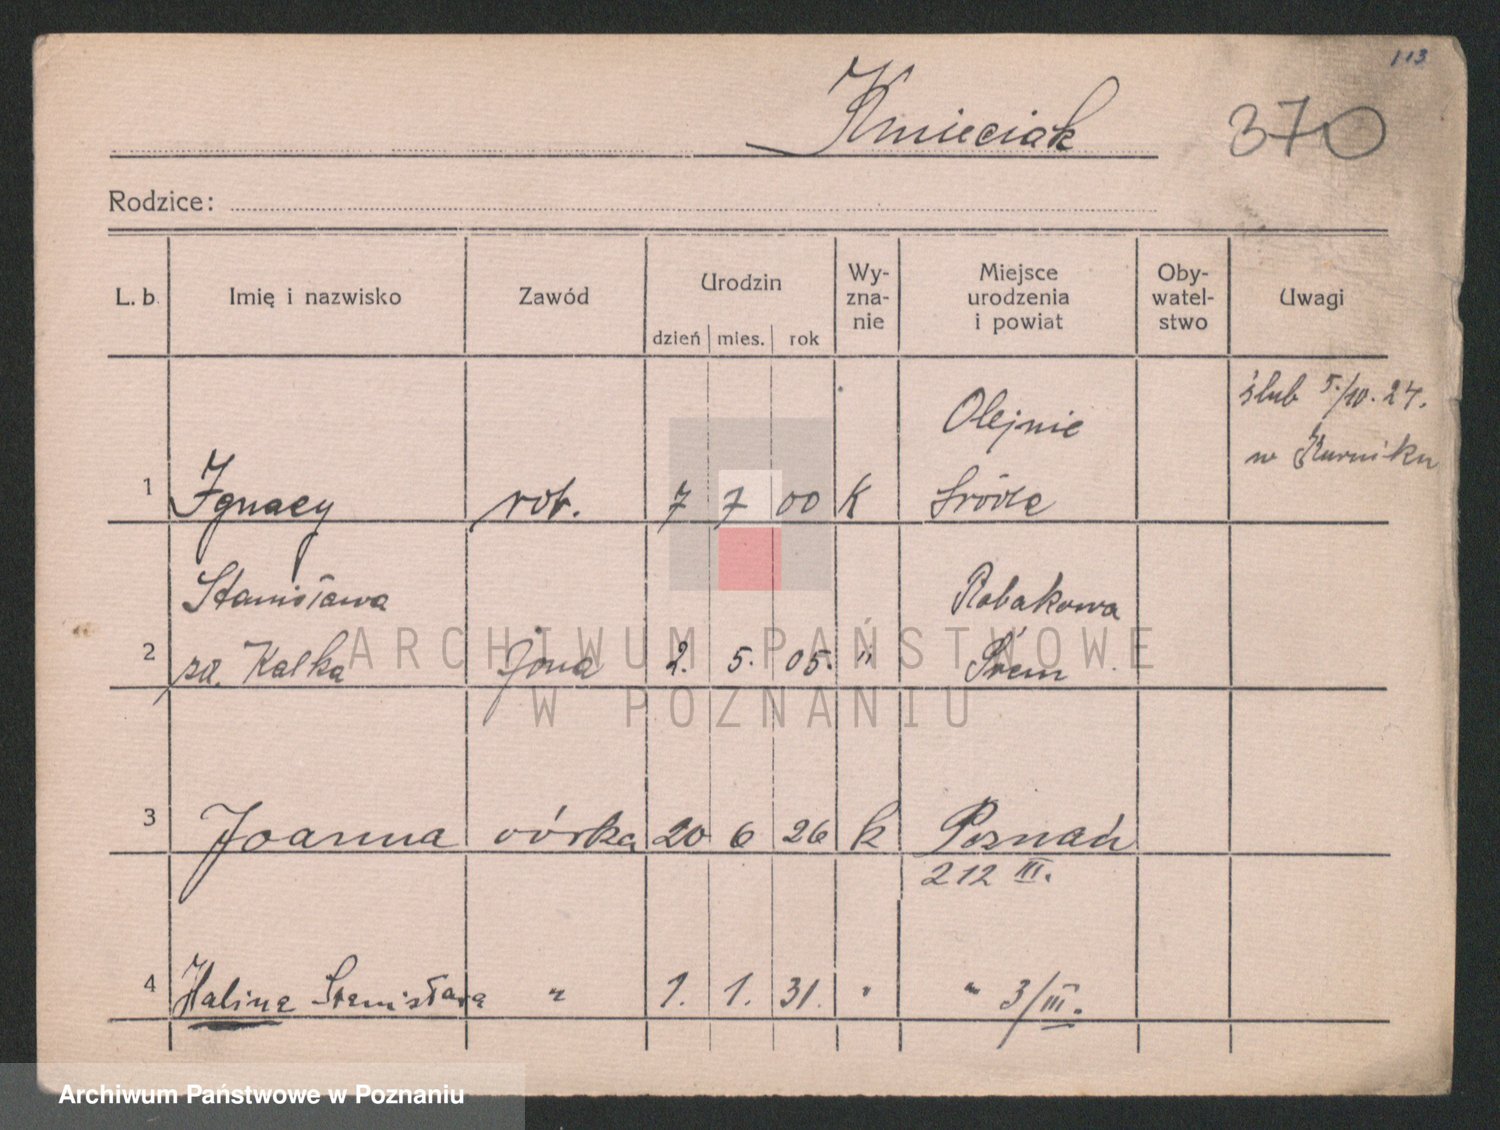 113
Kmieciak 370
Rodzice:
L. b. Imię i nazwisko Zawód Urodzin Wy-zna-nie Miejsce urodzenia i powiat Oby-watel-stwo Uwagi
dzień mies. rok
ślub 5./10. 24.
Olejnic
w Kurniku
1 Ignacy rob. 7 7 00 K Środa
Stanisława Robakowa
2 za. Kalka żona 2. 5. 05. " Śrem
3 Joanna córka 20 6 26 k Poznań
212 III.
4 Halina Stanisława " 1. 1. 31. " " 3/III.
ARCHIWUM PAŃSTWOWE
W POZNANIU
Archiwum Państwowe w Poznaniu